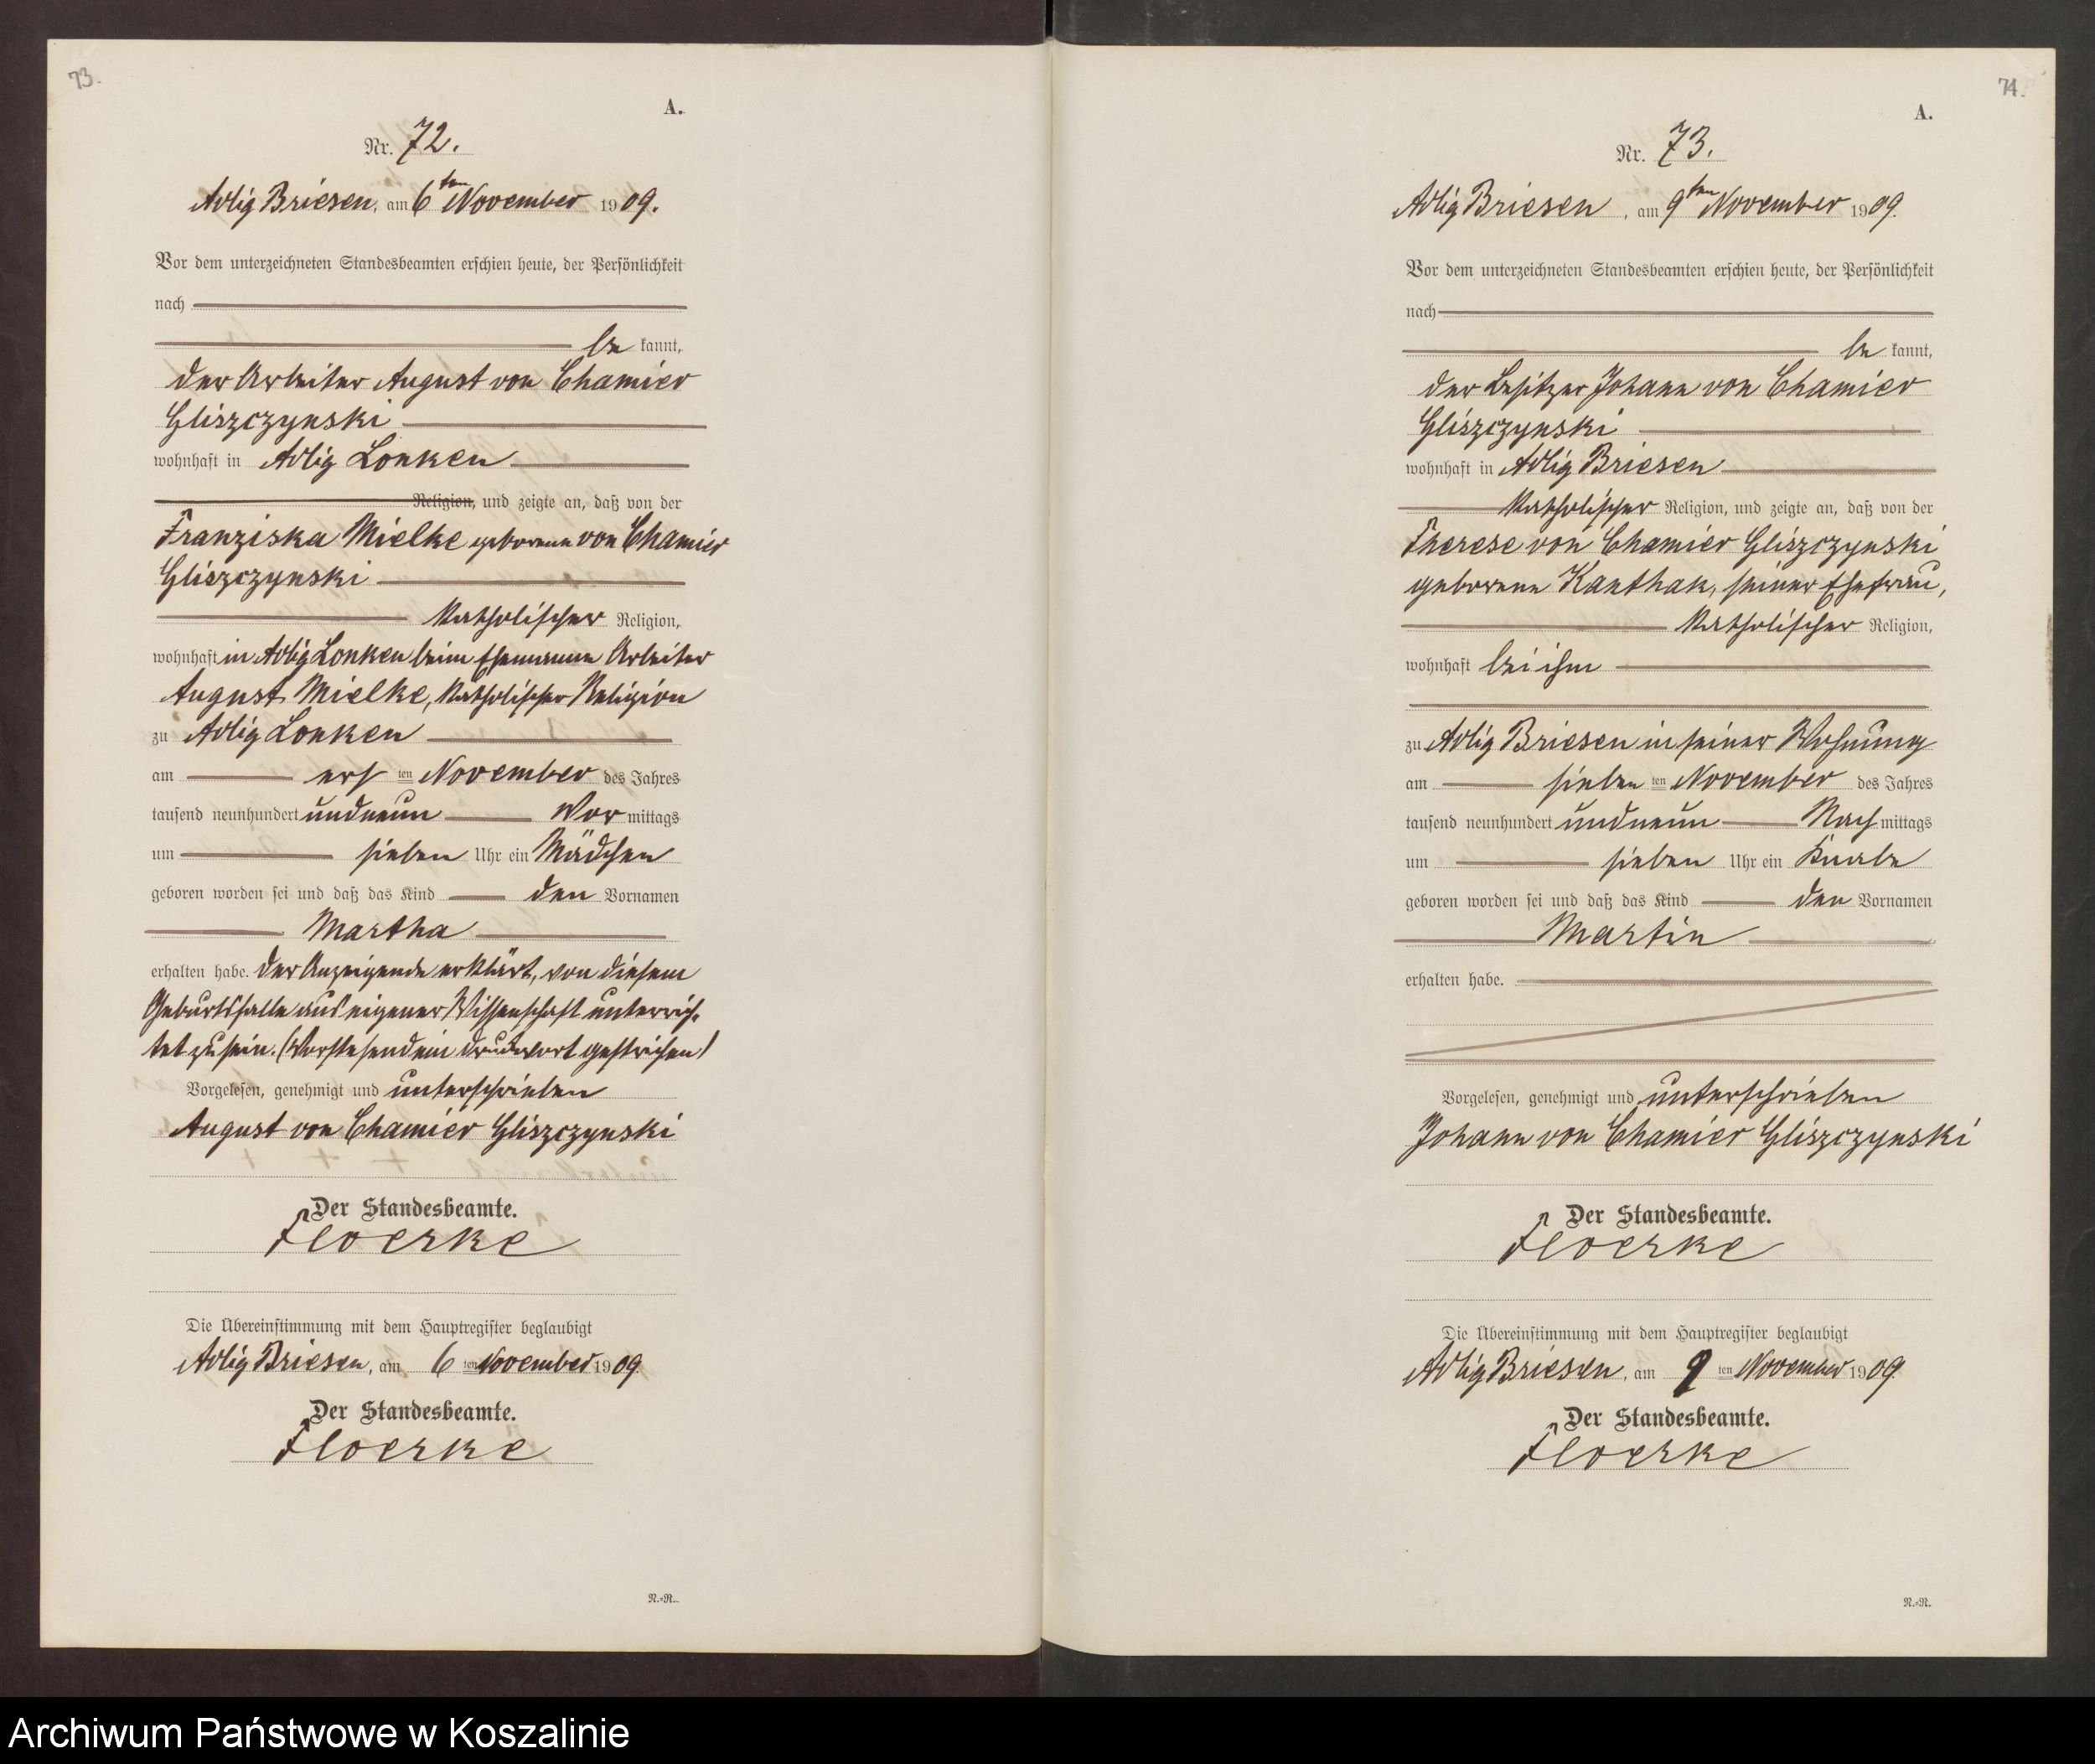 73.
A.
Nr. 72.
Adlig Briesen, am 6ten November 1909.
Vor dem unterzeichneten Standesbeamten erschien heute, der Persönlichkeit
nach
be kannt,
der Arbeiter August von Chamier
Gliszczynski
wohnhaft in Adlig Lonken
Religion, und zeigte an, daß von der
Franziska Mielke geborene von Chamier
Gliszczynski
katholischer Religion,
wohnhaft in Adlig Lonken beim Ehemanne Arbeiter
August Mielke, katholischer Religion
zu Adlig Lonken
am ersten November des Jahres
tausend neunhundert undneun Vormittags
um sieben Uhr ein Mädchen
geboren worden sei und daß das Kind den Vornamen
Martha
erhalten habe. Der Anzeigende erklärt, von diesem
Geburtsfalle aus eigener Wissenschaft unterrich-
tet zu sein. (Vorstehend ein Druckwort gestrichen)
Vorgelesen, genehmigt und unterschrieben
August von Chamier Gliszczynski
Der Standesbeamte.
Floerke
Die Übereinstimmung mit dem Hauptregister beglaubigt
Adlig Briesen, am 6ten November 1909.
Der Standesbeamte.
Floerke
N.=R.
74.
A.
Nr. 73.
Adlig Briesen, am 9ten November 1909.
Vor dem unterzeichneten Standesbeamten erschien heute, der Persönlichkeit
nach
be kannt,
der Besitzer Johann von Chamier
Gliszczynski
wohnhaft in Adlig Briesen
katholischer Religion, und zeigte an, daß von der
Therese von Chamier Gliszczynski
geborene Kanthak, seiner Ehefrau,
katholischer Religion,
wohnhaft bei ihm
zu Adlig Briesen in seiner Wohnung
am siebenten November des Jahres
tausend neunhundert undneun Nachmittags
um sieben Uhr ein Knabe
geboren worden sei und daß das Kind den Vornamen
Martin
erhalten habe.
Vorgelesen, genehmigt und unterschrieben
Johann von Chamier Gliszczynski
Der Standesbeamte.
Floerke
Die Übereinstimmung mit dem Hauptregister beglaubigt
Adlig Briesen, am 9ten November 1909.
Der Standesbeamte.
Floerke
N.=R.
Archiwum Państwowe w Koszalinie